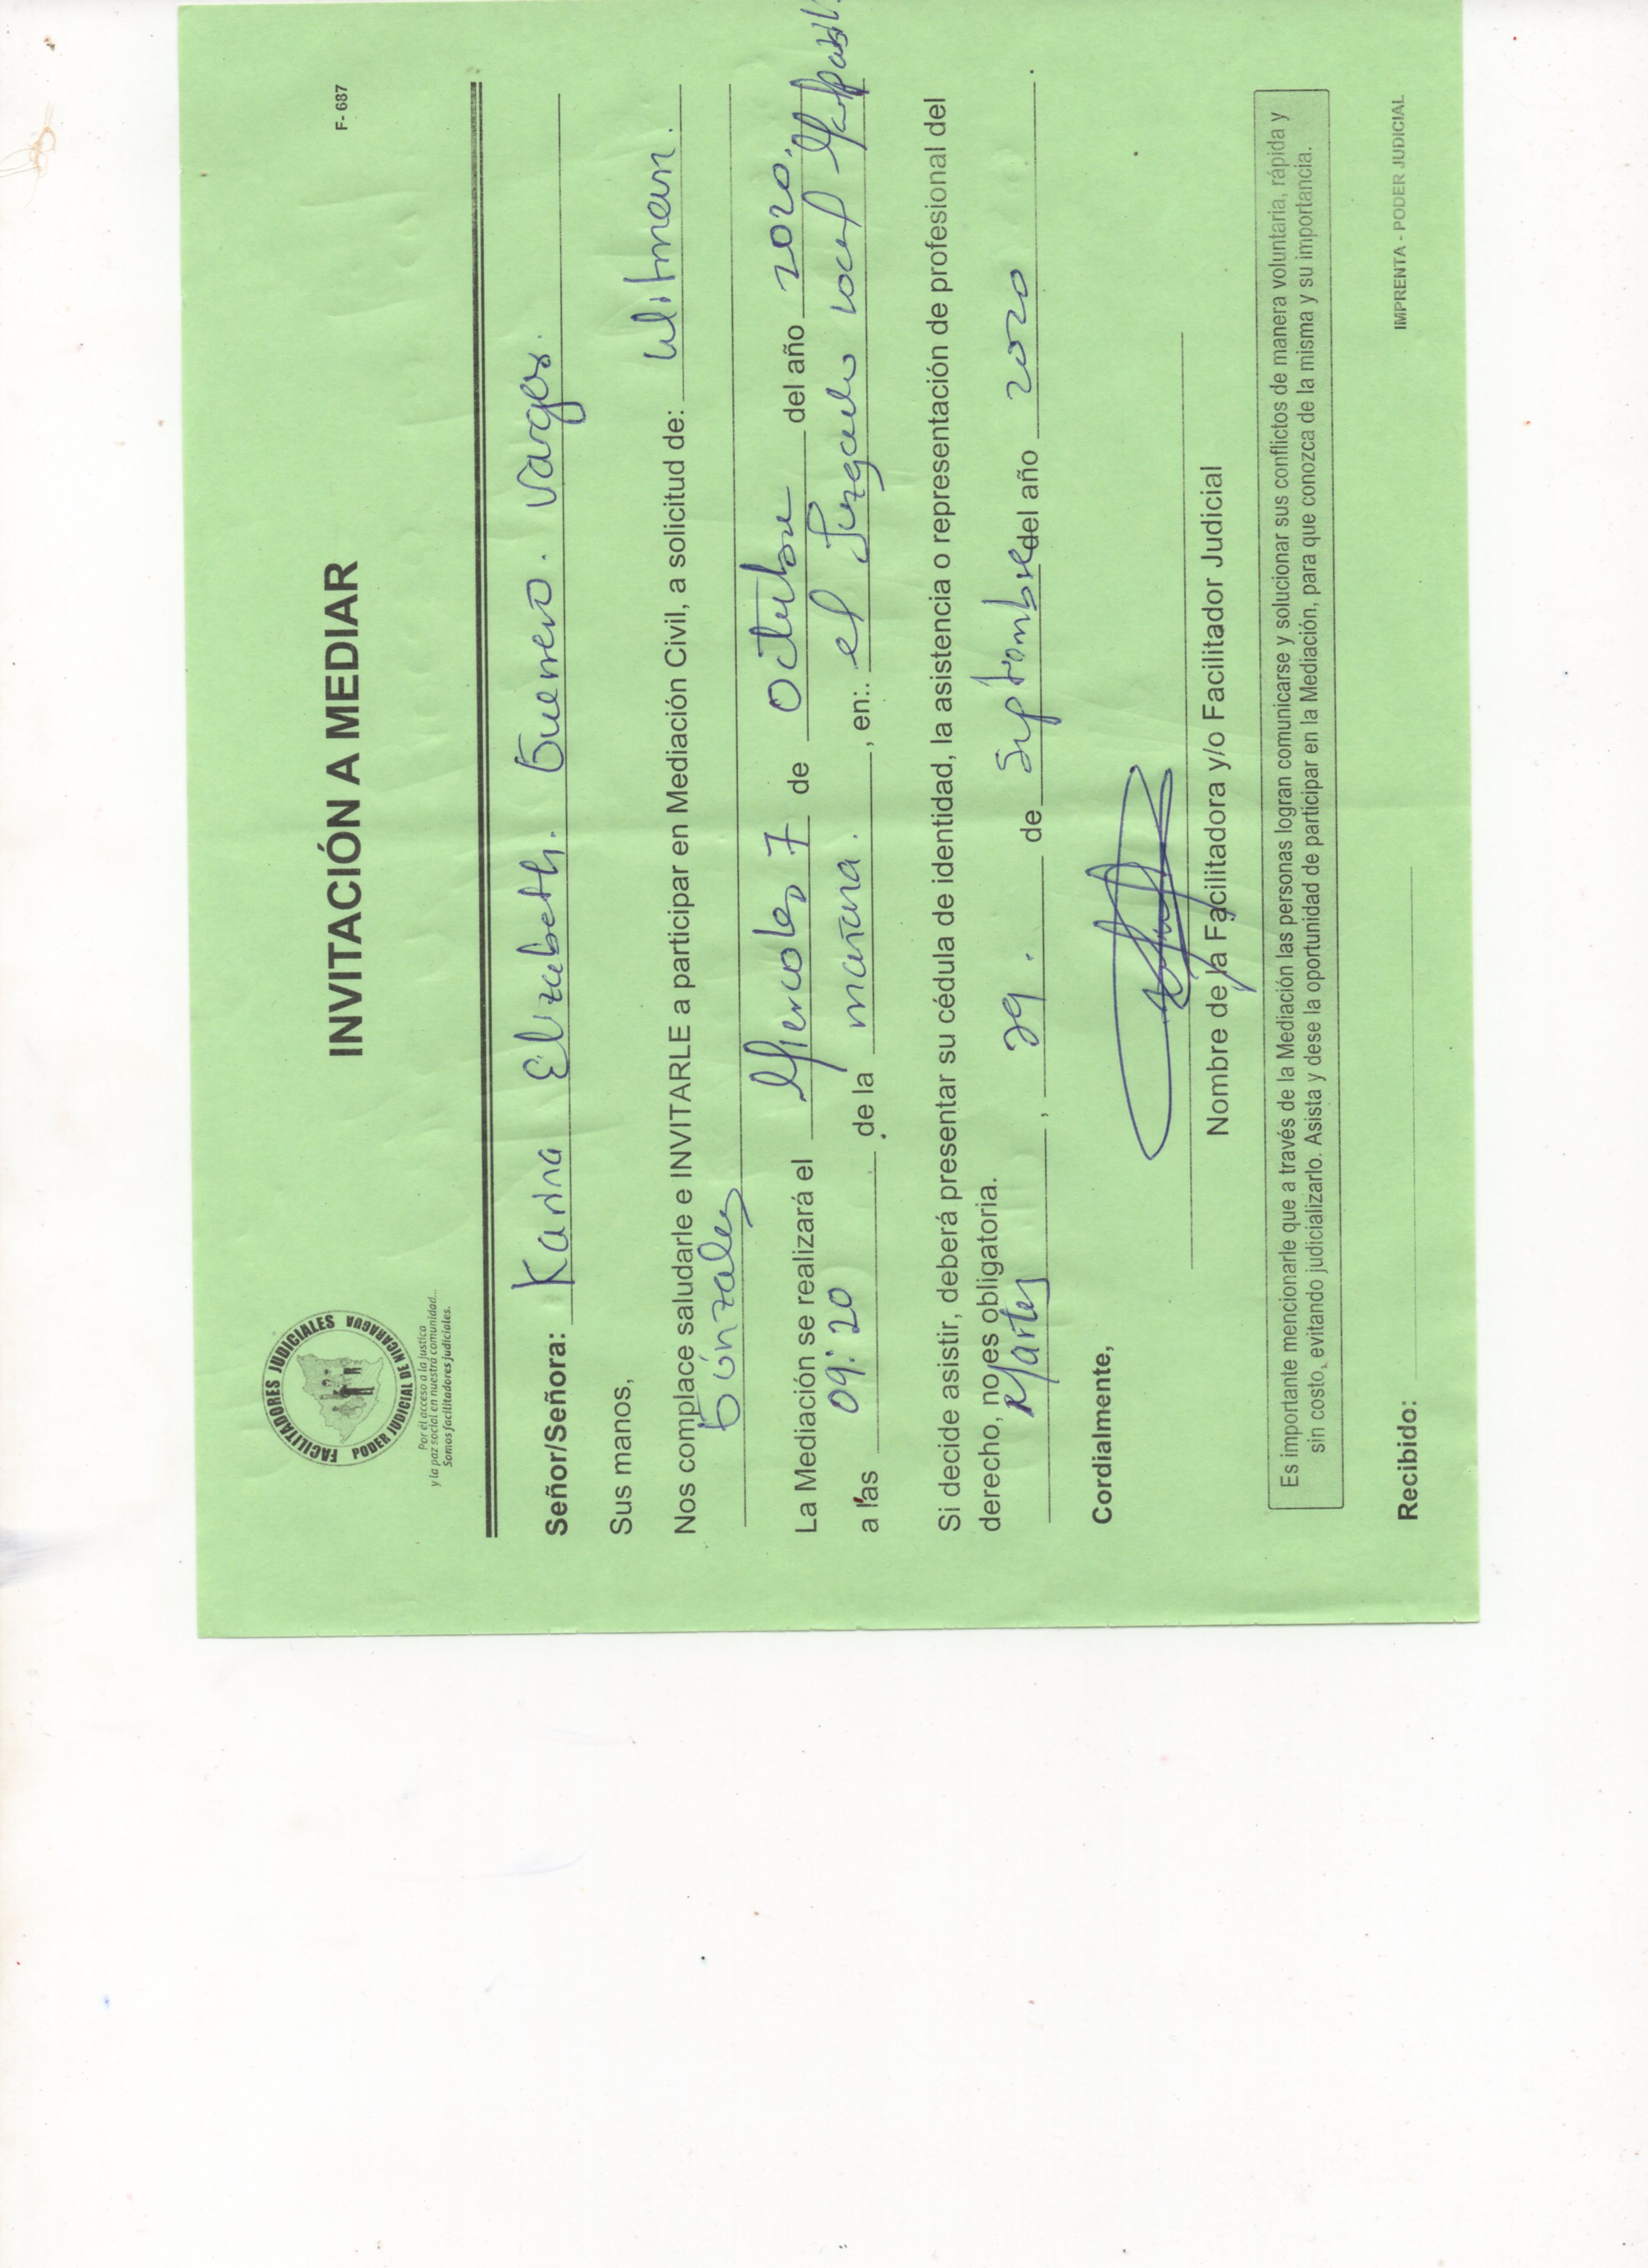 F- 687
FACILITADORES JUDICIALES
PODER JUDICIAL DE NICARAGUA
Por el acceso a la justicia
y la paz social en nuestra comunidad...
Somos facilitadores judiciales.
INVITACIÓN A MEDIAR
Señor/Señora: Karina Elizabeth. Guerrero. Vargas.
Sus manos,
Nos complace saludarle e INVITARLE a participar en Mediación Civil, a solicitud de: Witman.
Gónzalez
La Mediación se realizará el Miercoles 7 de Octubre del año 2020.
a las 09:20 de la mañana. , en:. el Juzgado local
Si decide asistir, deberá presentar su cédula de identidad, la asistencia o representación de profesional del
derecho, no es obligatoria.
Martes , 29. de Septiembre del año 2020
Cordialmente,
Nombre de la Facilitadora y/o Facilitador Judicial
Es importante mencionarle que a través de la Mediación las personas logran comunicarse y solucionar sus conflictos de manera voluntaria, rápida y
sin costo, evitando judicializarlo. Asista y dese la oportunidad de participar en la Mediación, para que conozca de la misma y su importancia.
Recibido:
IMPRENTA - PODER JUDICIAL